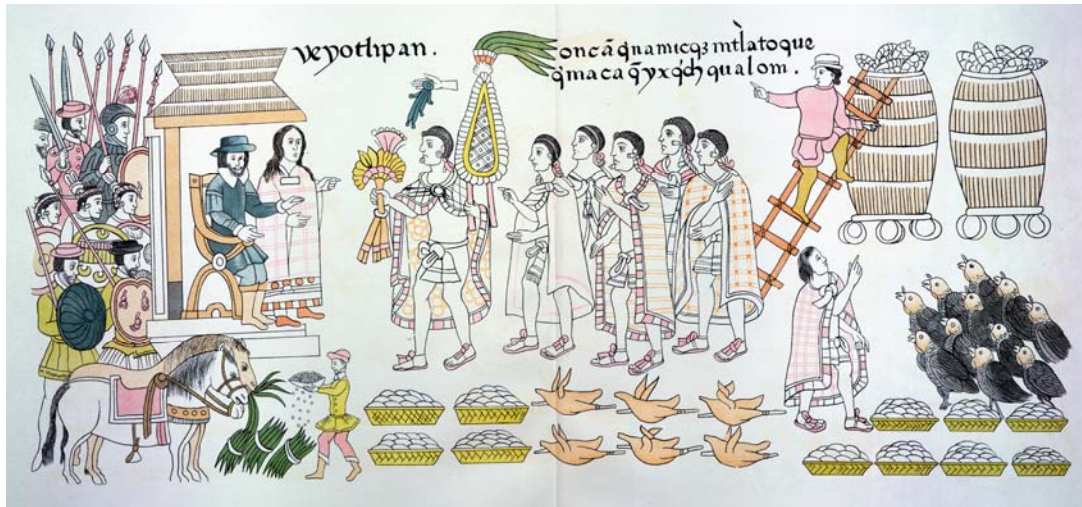 veyotlipan.
oncā q̄namicqꝫ mtlàtoque
q̄maca q̄yxq̄ch qualom.